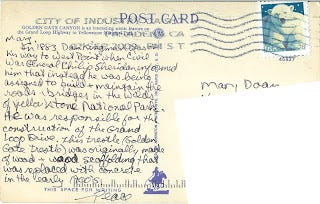 CITY OF INDUSTRY
POST CARD
GOLDEN GATE CANYON
the Grand Loop Highway in Yellowstone
Mary,
In 1883 Dan Kingman
his way to West Point when Civil
War General Philip Sheridan informed
him that instead he was being
assigned to build + maintain the
roads + bridges in the wilds
of Yellowstone National Park.
He was responsible for the
construction of the Grand
Loop Drive. This trestle (Golden
Gate trestle) was originally made
of wood + wood scaffolding that
was replaced with concrete
in the early 1900's.
THIS SPACE FOR WRITING
Peace
Mary Doan
USA